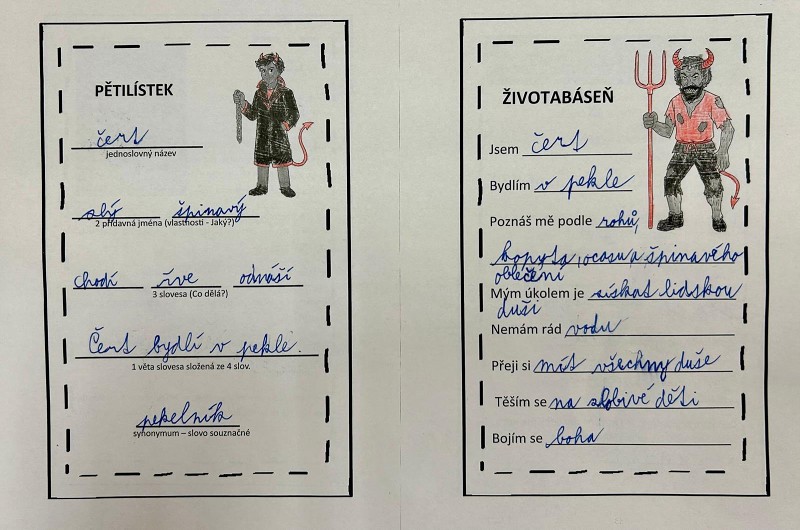 PĚTILÍSTEK
čert
jednoslovný název
zlý špinavý
2 přídavná jména (vlastnosti - Jaký?)
chodí řve odnáší
3 slovesa (Co dělá?)
Čert bydlí v pekle.
1 věta slovesa složená ze 4 slov.
pekelník
synonymum – slovo souznačné
ŽIVOTABÁSEŇ
Jsem čert
Bydlím v pekle
Poznáš mě podle rohů,
kopyta, ocasu a špinavého
oblečení
Mým úkolem je získat lidskou
duši
Nemám rád vodu
Přeji si mít všechny duše
Těším se na zlobivé děti
Bojím se boha